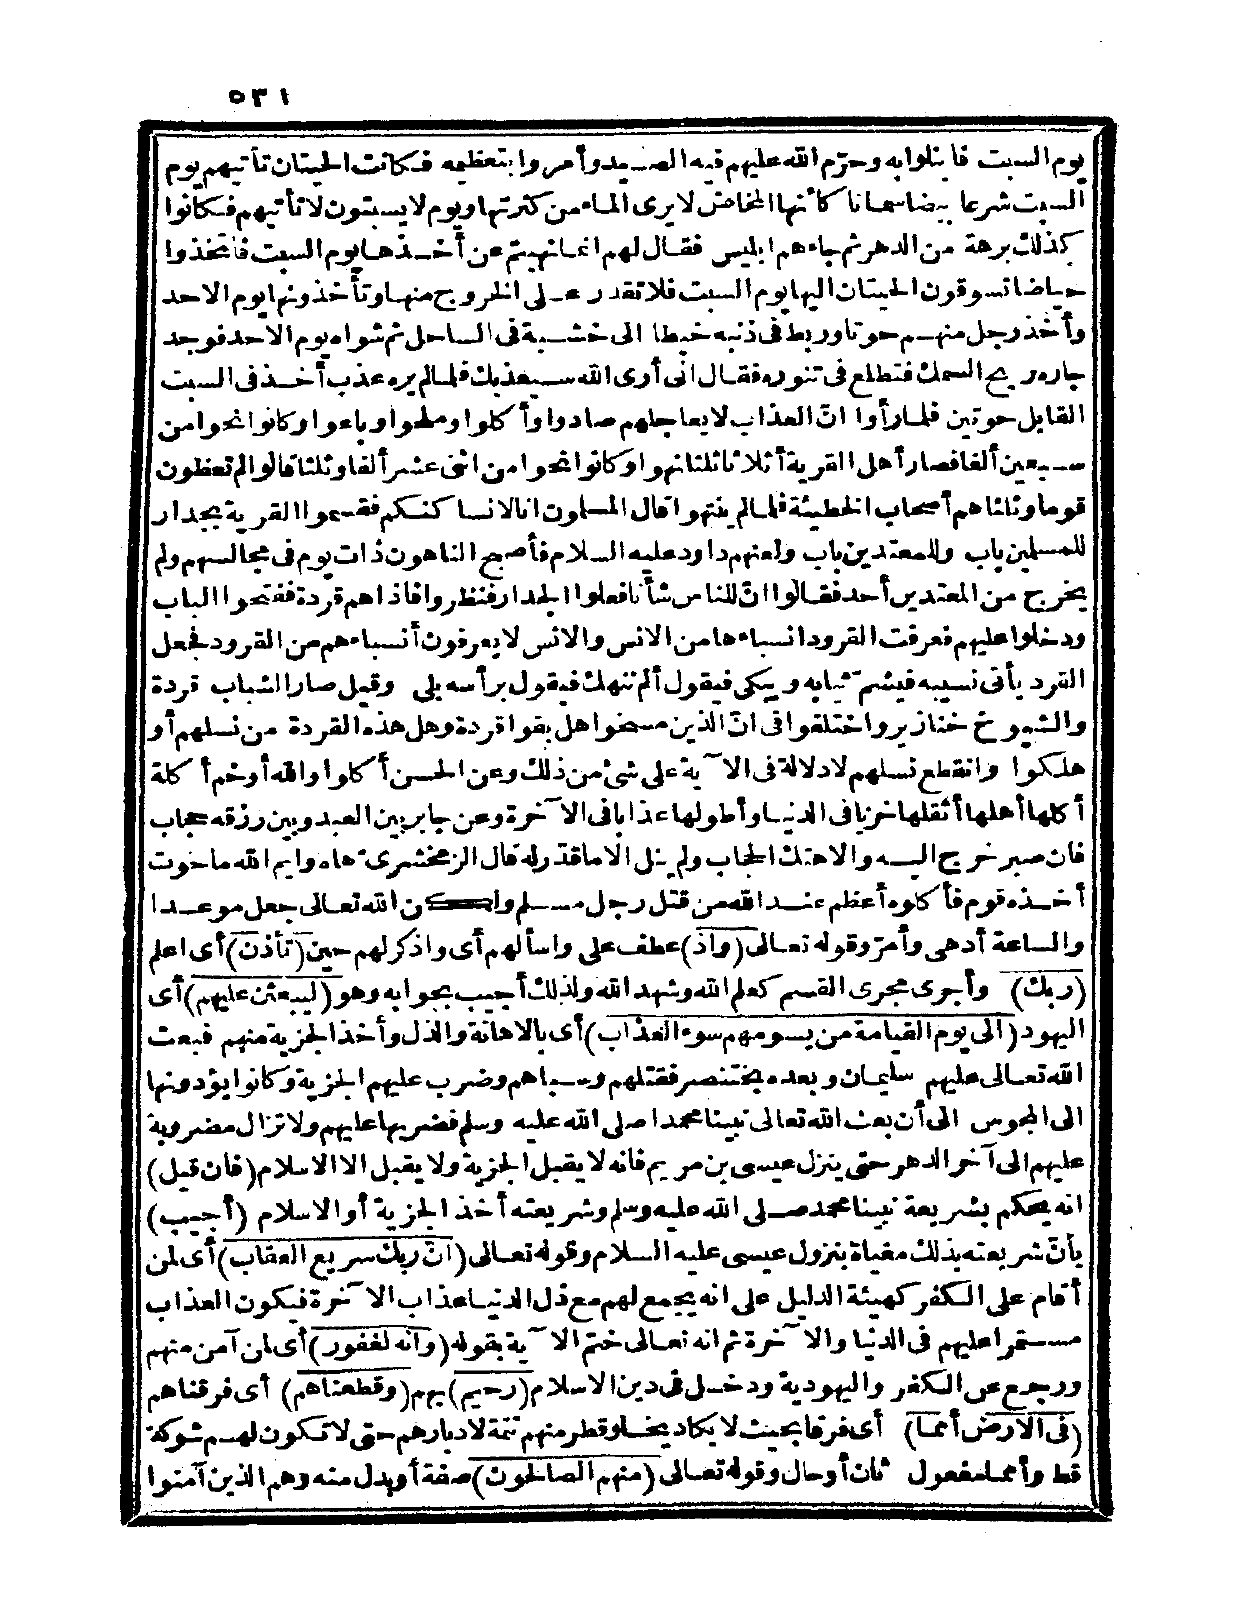 ٥٣١
يوم السبت فابتلوا به وحرّم الله عليهم فيه الصيد وأمروا بتعظيمه فكانت الحيتان تأتيهم يوم
السبت شرعا بيضا سمانا كأنها المخاض لا يرى الماء من كثرتها ويوم لا يسبتون لا تأتيهم فكانوا
كذلك برهة من الدهر ثم جاءهم ابليس فقال لهم انما نهيتم عن أخذها يوم السبت فاتخذوا
حياضا تسوقون الحيتان اليها يوم السبت فلا تقدر على الخروج منها وتأخذونها يوم الاحد
وأخذ رجل منهم حوتا وربط فى ذنبه خيطا الى خشبة فى الساحل ثم شواه يوم الاحد فوجد
جاره ريح السمك فتطلع فى تنوره فقال انى أرى الله سيعذبك فلما لم يره عذب أخذ فى السبت
القابل حوتين فلما رأوا انّ العذاب لا يعاجلهم صادوا وأكلوا وملحوا وباعوا وكانوا نحوا من
سبعين ألفا فصار أهل القرية أثلاثا ثلثا نهوا وكانوا نحوا من اثنى عشر ألفا وثلثا قالوا لم تعظون
قوما وثلثا هم أصحاب الخطيئة فلما لم ينتهوا قال المسلمون انا لا نساكنكم فقسموا القرية بجدار
للمسلمين باب وللمعتدين باب ولعنهم داود عليه السلام فأصبح الناهون ذات يوم فى مجالسهم ولم
يخرج من المعتدين أحد فقالوا انّ للناس شأنا فعلوا الجدار فنظروا فاذا هم قردة ففتحوا الباب
ودخلوا عليهم فعرفت القرود انسباءها من الانس والانس لا يعرفون أنسباءهم من القرود فجعل
القرد يأتى نسيبه فيشمّ ثيابه ويبكى فيقول ألم ننهك فيقول برأسه بلى وقيل صار الشباب قردة
والشيوخ خنازير واختلفوا فى انّ الذين مسخوا هل بقوا قردة وهل هذه القردة من نسلهم أو
هلكوا وانقطع نسلهم لا دلالة فى الآية على شئ من ذلك وعن الحسن أكلوا والله أوخم أكلة
أكلها أهلها أثقلها خزيا فى الدنيا وأطولها عذابا فى الآخرة وعن جابر بين العبد وبين رزقه حجاب
فان صبر خرج اليه والا هتك الحجاب ولم ينل الا ما قدّر له قال الزمخشرى هاه وايم الله ما حوت
أخذه قوم فأكلوه أعظم عند الله من قتل رجل مسلم ولكن الله تعالى جعل موعدا
والساعة أدهى وأمرّ وقوله تعالى (واذ) عطف على واسألهم أى واذكر لهم حين (تأذن) أى اعلم
(ربك) وأجرى مجرى القسم كعلم الله وشهد الله ولذلك أجيب بجوابه وهو (ليبعثن عليهم) أى
اليهود (الى يوم القيامة من يسومهم سوء العذاب) أى بالاهانة والذل وأخذ الجزية منهم فبعث
الله تعالى عليهم سليمان وبعده بختنصر فقتلهم وسباهم وضرب عليهم الجزية وكانوا يؤدونها
الى المجوس الى أن بعث الله تعالى نبينا محمدا صلى الله عليه وسلم فضربها عليهم ولا تزال مضروبة
عليهم الى آخر الدهر حتى ينزل عيسى بن مريم فانه لا يقبل الجزية ولا يقبل الا الاسلام (فان قيل)
انه يحكم بشريعة نبينا محمد صلى الله عليه وسلم وشريعته أخذ الجزية أو الاسلام (أجيب)
بأنّ شريعته بذلك مغياة بنزول عيسى عليه السلام وقوله تعالى (انّ ربك سريع العقاب) أى لمن
أقام على الكفر كهيئة الدليل على انه يجمع لهم مع ذل الدنيا عذاب الآخرة فيكون العذاب
مستمرا عليهم فى الدنيا والآخرة ثم انه تعالى ختم الآية بقوله (وانه لغفور) أى لمن آمن منهم
ورجع عن الكفر واليهودية ودخل فى دين الاسلام (رحيم) بهم (وقطعناهم) أى فرقناهم
(فى الارض أمما) أى فرقا بحيث لا يكاد يخلو قطر منهم تتمة لادبارهم حتى لا تكون لهم شوكة
قط وأمما مفعول ثان أو حال وقوله تعالى (منهم الصالحون) صفة أو بدل منه وهم الذين آمنوا